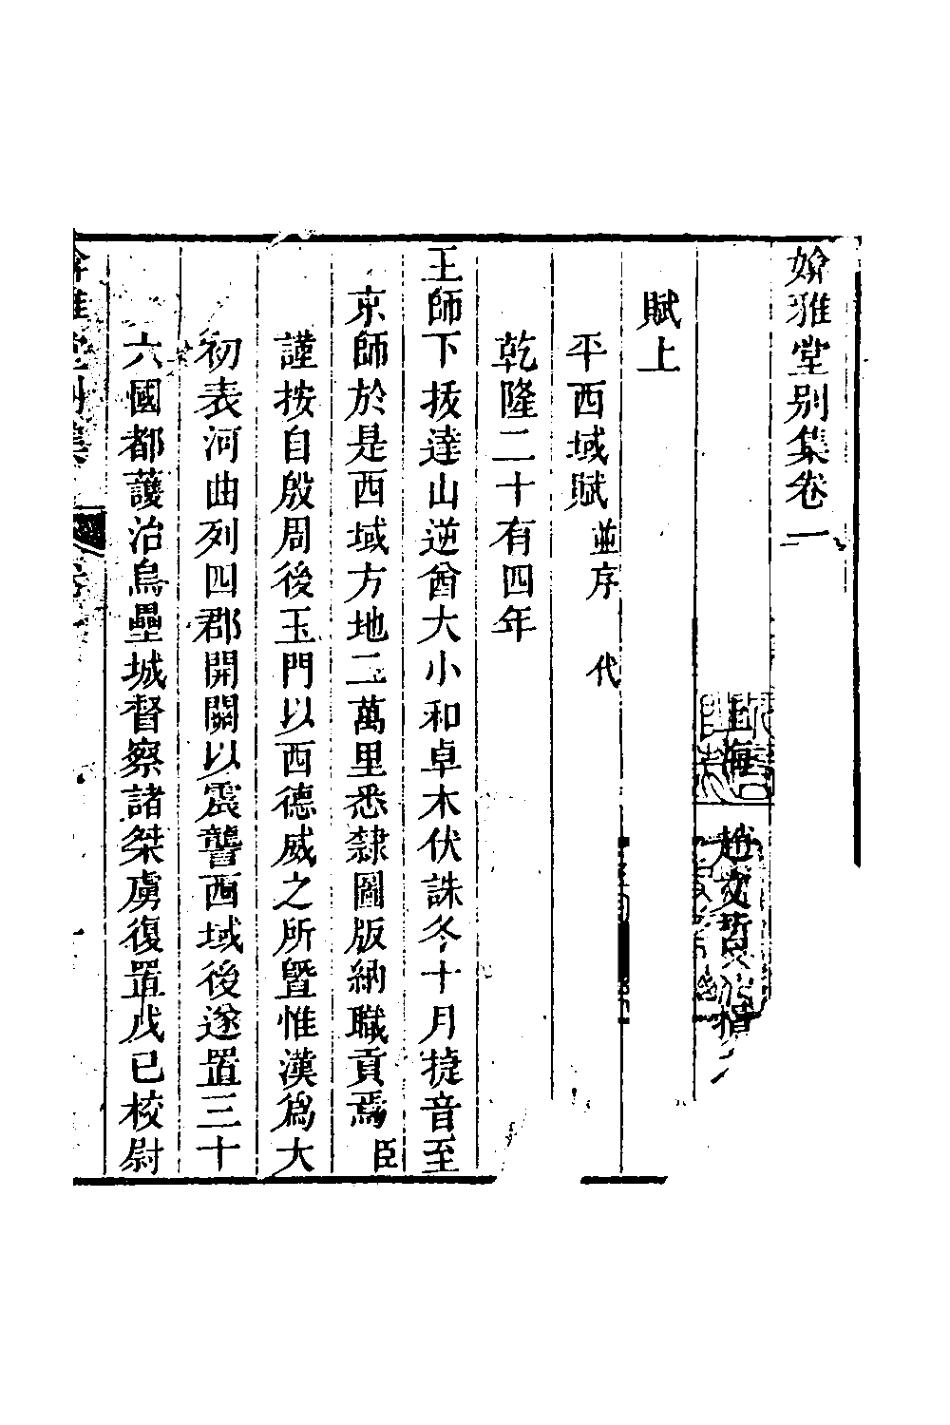 媕雅堂别集卷一
上海 趙文哲
賦上
平西域賦 並序 代
乾隆二十有四年
王師下拔達山逆酋大小和卓木伏誅冬十月捷音至
京師於是西域方地二萬里悉隸圖版納職貢焉臣
謹按自殷周後玉門以西德威之所曁惟漢爲大
初表河曲列四郡開關以震讋西域後遂置三十
六國都護治烏壘城督察諸桀虜復置戊己校尉